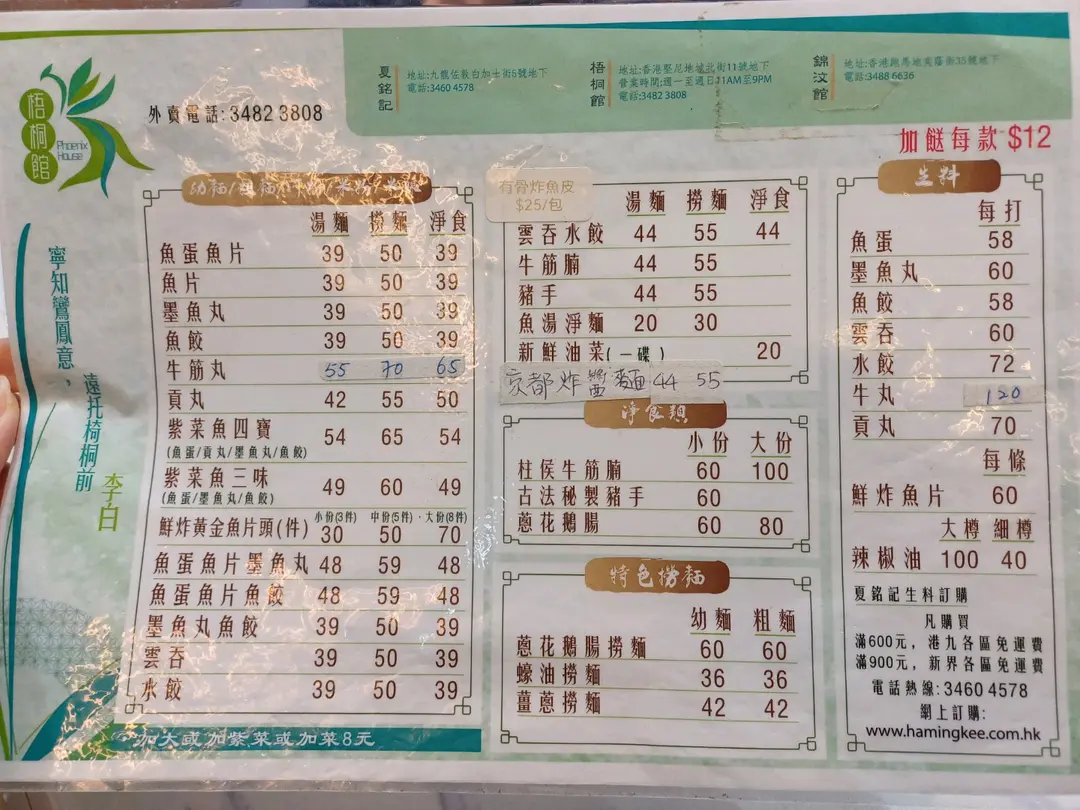 梧桐館
Phoenix House
外賣電話: 3482 3808
夏銘記
地址:九龍佐敦白加士街5號地下
電話:3460 4578
梧桐館
地址:香港堅尼地城北街11號地下
營業時間:週一至週日11AM至9PM
電話:3482 3808
錦汶館
地址:香港跑馬地奕蔭街35號地下
電話:3488 6636
加餸每款 $12
寧知鸞鳳意，
遠托椅桐前
李白
湯麵 撈麵 淨食
魚蛋魚片 39 50 39
魚片 39 50 39
墨魚丸 39 50 39
魚餃 39 50 39
牛筋丸 55 70 65
貢丸 42 55 50
紫菜魚四寶 54 65 54
(魚蛋/貢丸/墨魚丸/魚餃)
紫菜魚三味 49 60 49
(魚蛋/墨魚丸/魚餃)
小份(3件) 中份(5件)·大份(8件)
鮮炸黃金魚片頭(件) 30 50 70
魚蛋魚片墨魚丸 48 59 48
魚蛋魚片魚餃 48 59 48
墨魚丸魚餃 39 50 39
雲吞 39 50 39
水餃 39 50 39
加大或加紫菜或加菜8元
有骨炸魚皮
$25/包
湯麵 撈麵 淨食
雲吞水餃 44 55 44
牛筋腩 44 55
豬手 44 55
魚湯淨麵 20 30
新鮮油菜(一碟) 20
京都炸醬麵 44 55
淨食類
小份 大份
柱侯牛筋腩 60 100
古法秘製豬手 60
蔥花鵝腸 60 80
特色撈麵
幼麵 粗麵
蔥花鵝腸撈麵 60 60
蠔油撈麵 36 36
薑蔥撈麵 42 42
生料
每打
魚蛋 58
墨魚丸 60
魚餃 58
雲吞 60
水餃 72
牛丸 120
貢丸 70
每條
鮮炸魚片 60
大樽 細樽
辣椒油 100 40
夏銘記生料訂購
凡購買
滿600元，港九各區免運費
滿900元，新界各區免運費
電話熱線:3460 4578
網上訂購:
www.hamingkee.com.hk